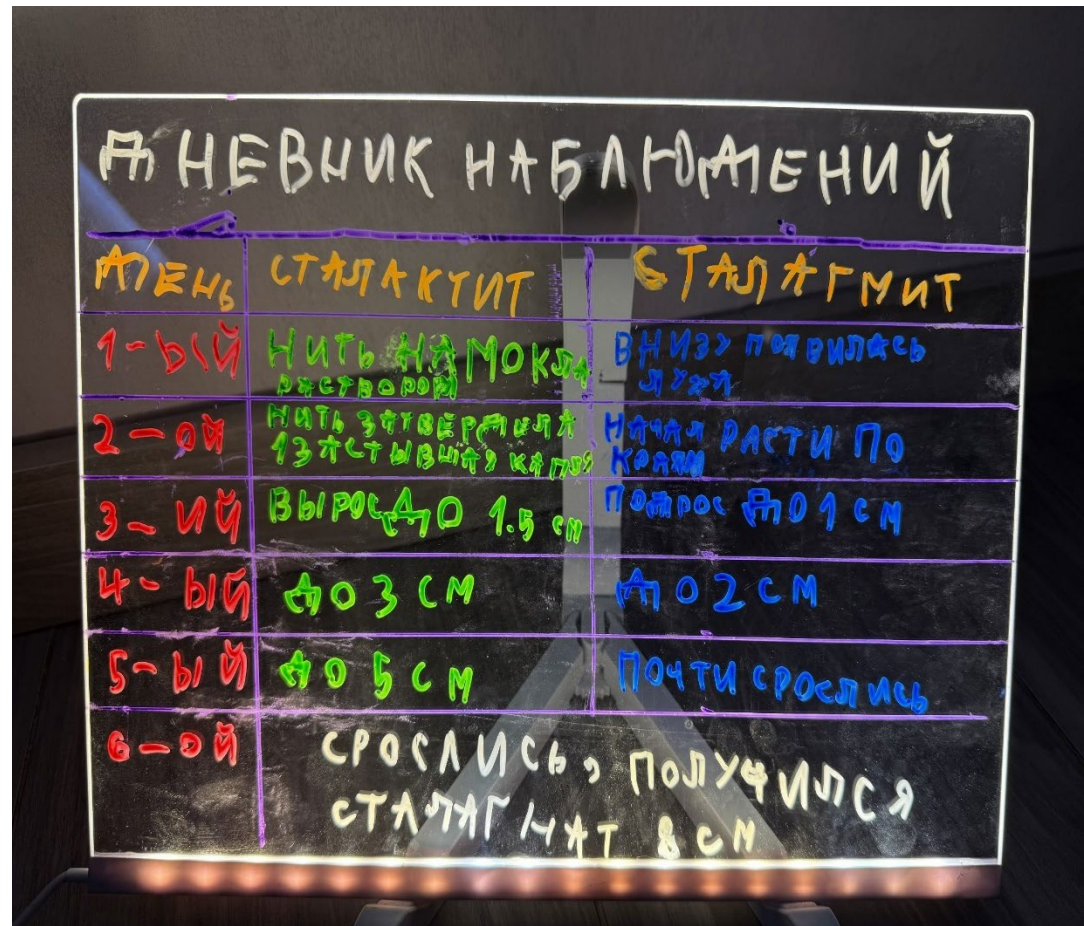 ДНЕВНИК НАБЛЮДЕНИЙ
ДЕНЬ СТАЛАКТИТ СТАЛАГМИТ
1-ЫЙ НИТЬ НАМОКЛА ВНИЗУ ПОЯВИЛАСЬ
РАСТВОРОМ ЛУЖА
2-ОЙ НИТЬ ЗАТВЕРДИЛА НАЧАЛ РАСТИ ПО
1 ЗАСТЫВШАЯ КАПЛЯ КРАЯМ
3-ИЙ ВЫРОС ДО 1.5 СМ ПОДРОС ДО 1 СМ
4-ЫЙ ДО 3 СМ ДО 2 СМ
5-ЫЙ ДО 5 СМ ПОЧТИ СРОСЛИСЬ
6-ОЙ СРОСЛИСЬ, ПОЛУЧИЛСЯ
СТАЛАГНАТ 8 СМ